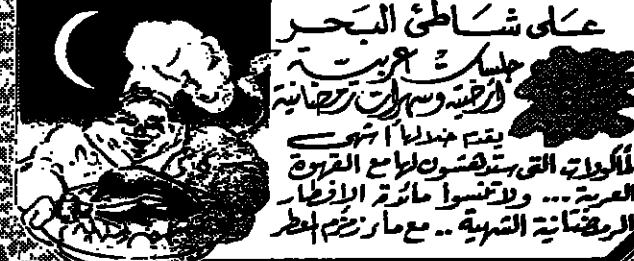 عَلى شَاطئ البَحر
جلسات عربية
أرضية وسهرات رمضانية
يقدم خلالها أشهى
المأكولات التي ستدهشون لها مع القهوة
العربية ... ولا تنسوا مائدة الإفطار
الرمضانية الشهية .. مع ماء زمزم العطر